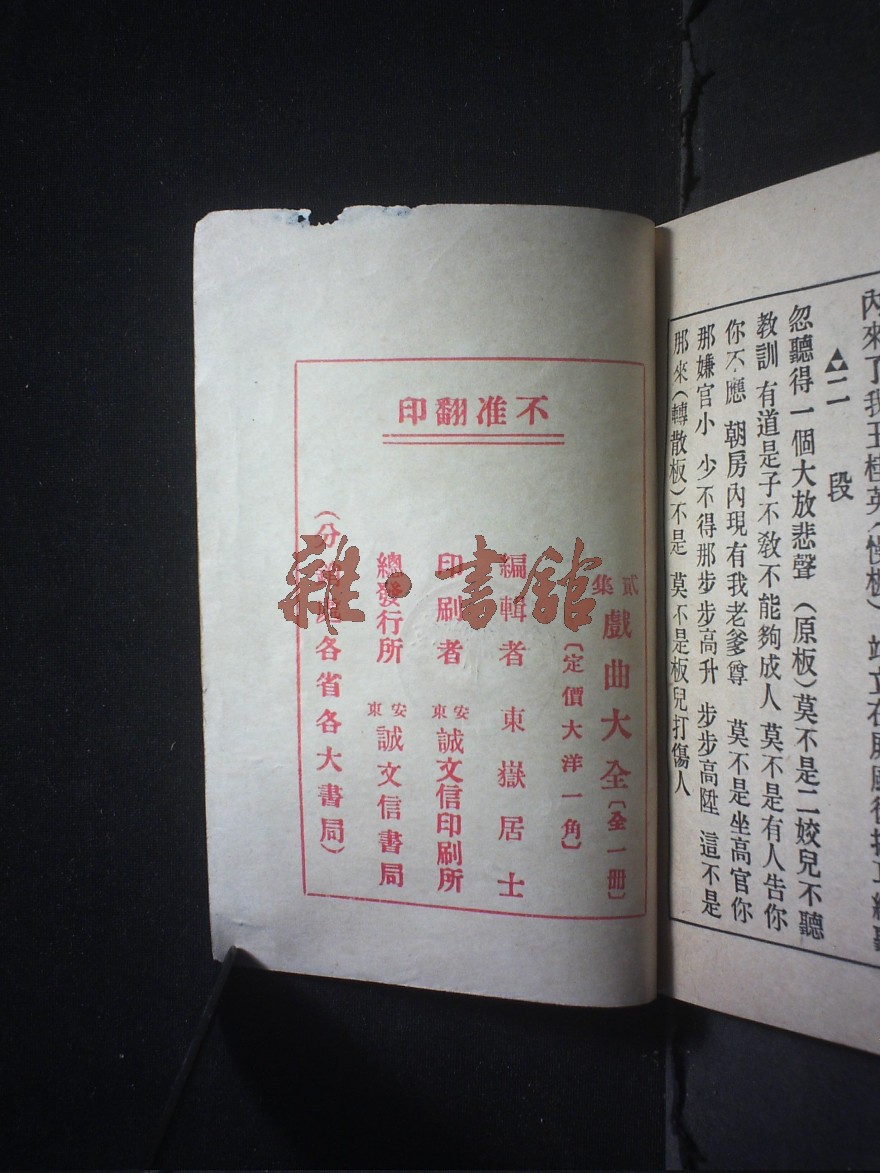 內來了我王桂英(慢板)
二段
忽聽得一個大放悲聲 (原板)莫不是二姣兒不聽
教訓 有道是子不教不能夠成人 莫不是有人告你
你不應 朝房內現有我老爹尊 莫不是坐高官你
那嫌官小 少不得那步步高升 步步高陞 這不是
那來(轉散板)不是 莫不是板兒打傷人
不准翻印
貳集戲曲大全〔全一冊〕
〔定價大洋一角〕
編輯者 東嶽居士
印刷者 安東 誠文信印刷所
總發行所 安東 誠文信書局
(分 各省各大書局)
雜·書館